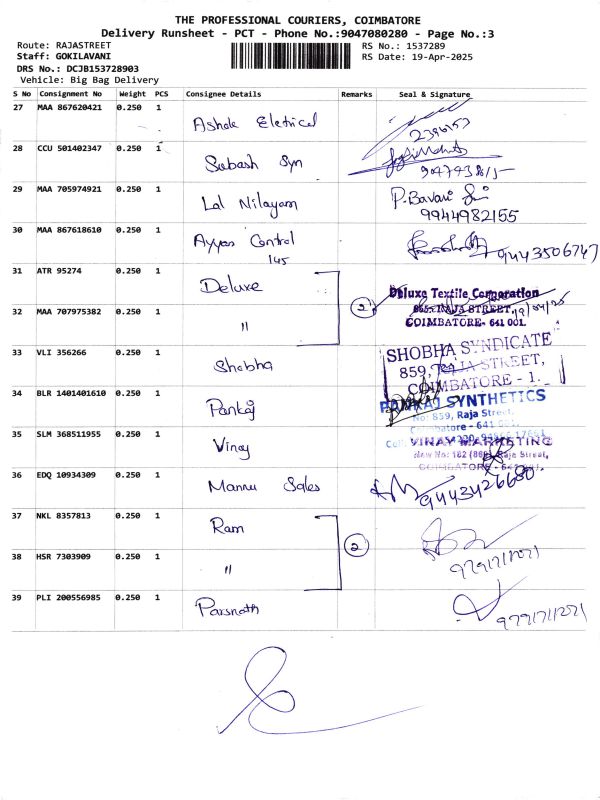 THE PROFESSIONAL COURIERS, COIMBATORE
Delivery Runsheet - PCT - Phone No.:9047080280 - Page No.:3
Route: RAJASTREET
RS No.: 1537289
Staff: GOKILAVANI
RS Date: 19-Apr-2025
DRS No.: DCJB153728903
Vehicle: Big Bag Delivery
S No Consignment No Weight PCS Consignee Details Remarks Seal & Signature
27 MAA 867620421 0.250 1 Ashok Eletrical
2396153
28 CCU 501402347 0.250 1 Subash Syn
29 MAA 705974921 0.250 1 Lal Nilayam P. Bavani
9944982155
30 MAA 867618610 0.250 1 Ayyas Central 9443506747
145
31 ATR 95274 0.250 1 Deluxe
2 Deluxe Textile Corporation
RAJA STREET,
32 MAA 707975382 0.250 1 " COIMBATORE- 641 001.
33 VLI 356266 0.250 1 Shobha SHOBHA SYNDICATE
859, RAJA STREET,
COIMBATORE - 1.
34 BLR 1401401610 0.250 1 Pankaj PANKAJ SYNTHETICS
No: 859, Raja Street,
Coimbatore - 641
35 SLM 368511955 0.250 1 Vinay VINAY MARKETING
New No: 182 Raja Street,
COIMBATORE
36 EDQ 10934309 0.250 1 Mannu Sales 9443426680
37 NKL 8357813 0.250 1 Ram
2
38 HSR 7303909 0.250 1 "
39 PLI 200556985 0.250 1 Parsnath